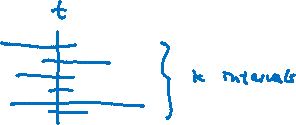 t
k intervals